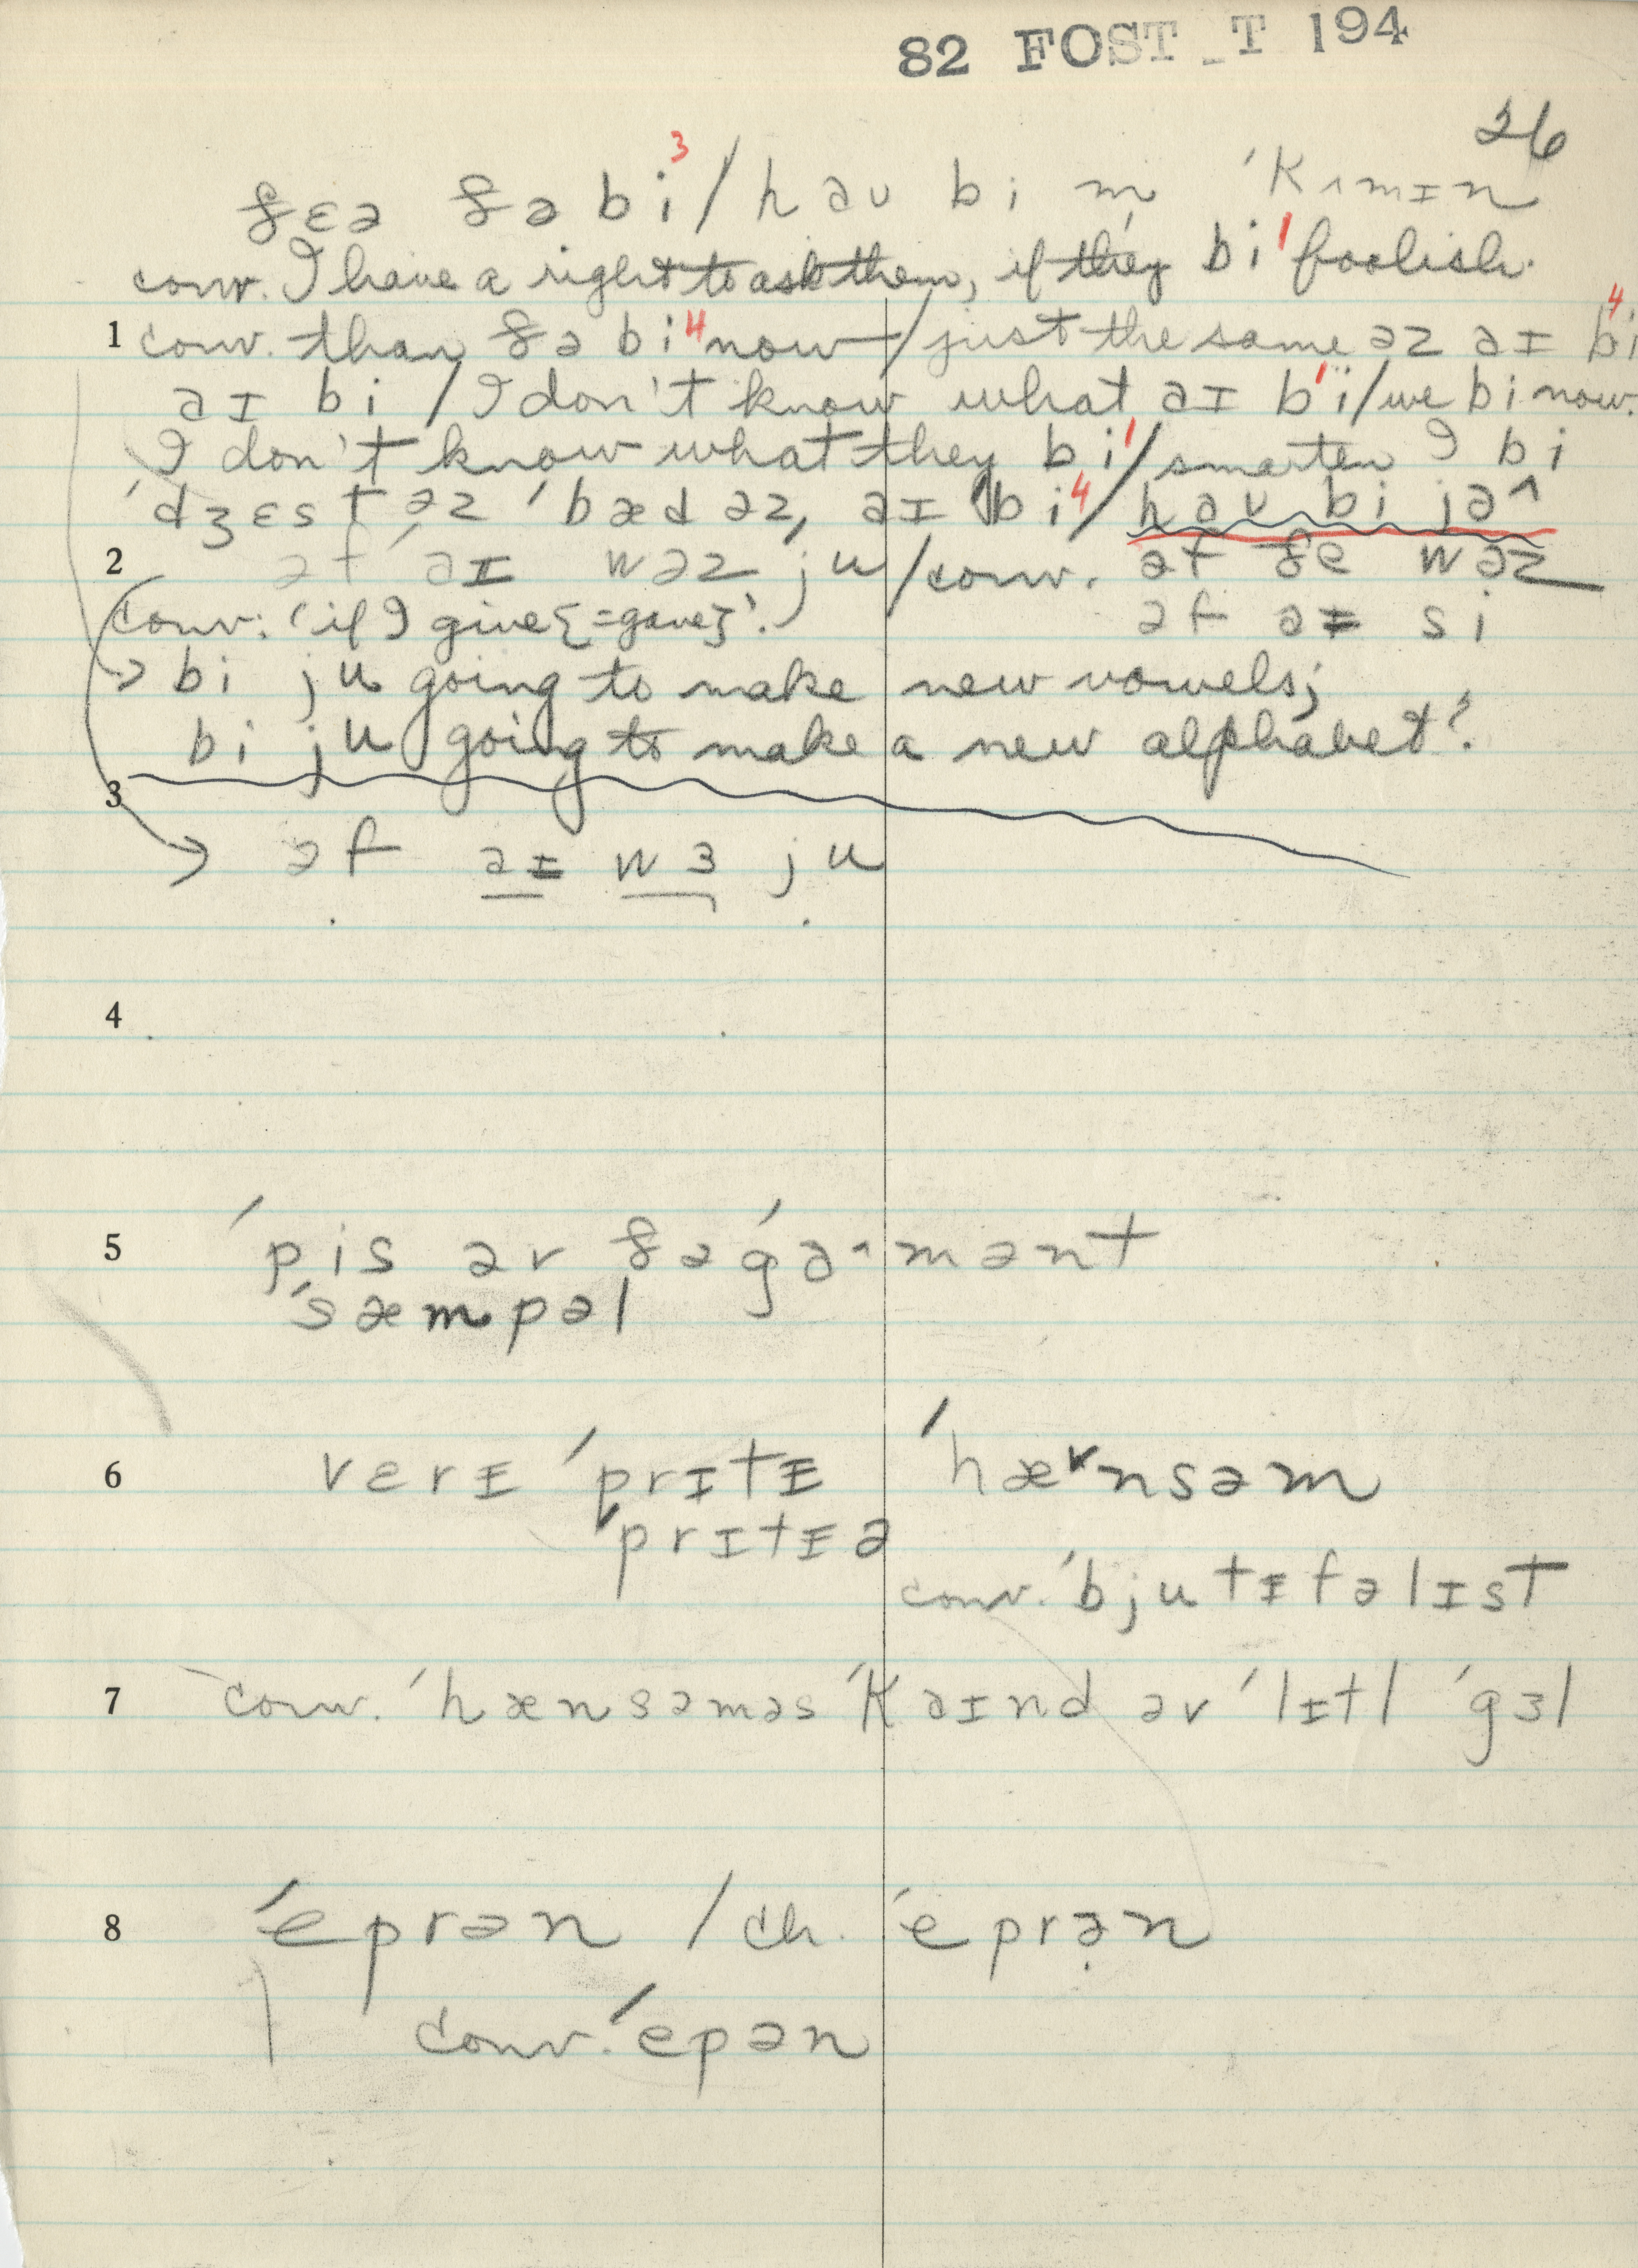 82 FOST_T 194
26
ðɛə ðə bi³ / həʊ bi m̩ ˈkʌmɪn
conv. I have a right to ask them, if they bi¹ foolish.
1 conv. than ðə bi⁴ now / just the same əz əɪ bi⁴
əɪ bi / I don't know what əɪ bi¹ / we bi now.
I don't know what they bi¹ / smarter I bi
ˈdʒɛst əz ˈbæd əz əɪ bi⁴ / həʊ bi jə^
2 əf əɪ wəz ju / conv. əf ðe wəz
conv. 'if I give {=gave}'. əf əɪ si
→ bi ju going to make new vowels;
bi ju going to make a new alphabet?
3
→ əf əɪ wɜ ju
4
5 ˈpis əv ðəˈgə^mənt
ˈsæmpəl
6 vɛrɪ ˈprɪtɪ ˈhæ˅nsəm
ˈprɪtɪə
conv. ˈbjutɪfəlɪst
7 conv. ˈhænsəməs ˈkəɪnd əv ˈlɪtl ˈgɜl
8 ˈeprən / ch. ˈeprə̣n
conv. ˈepən